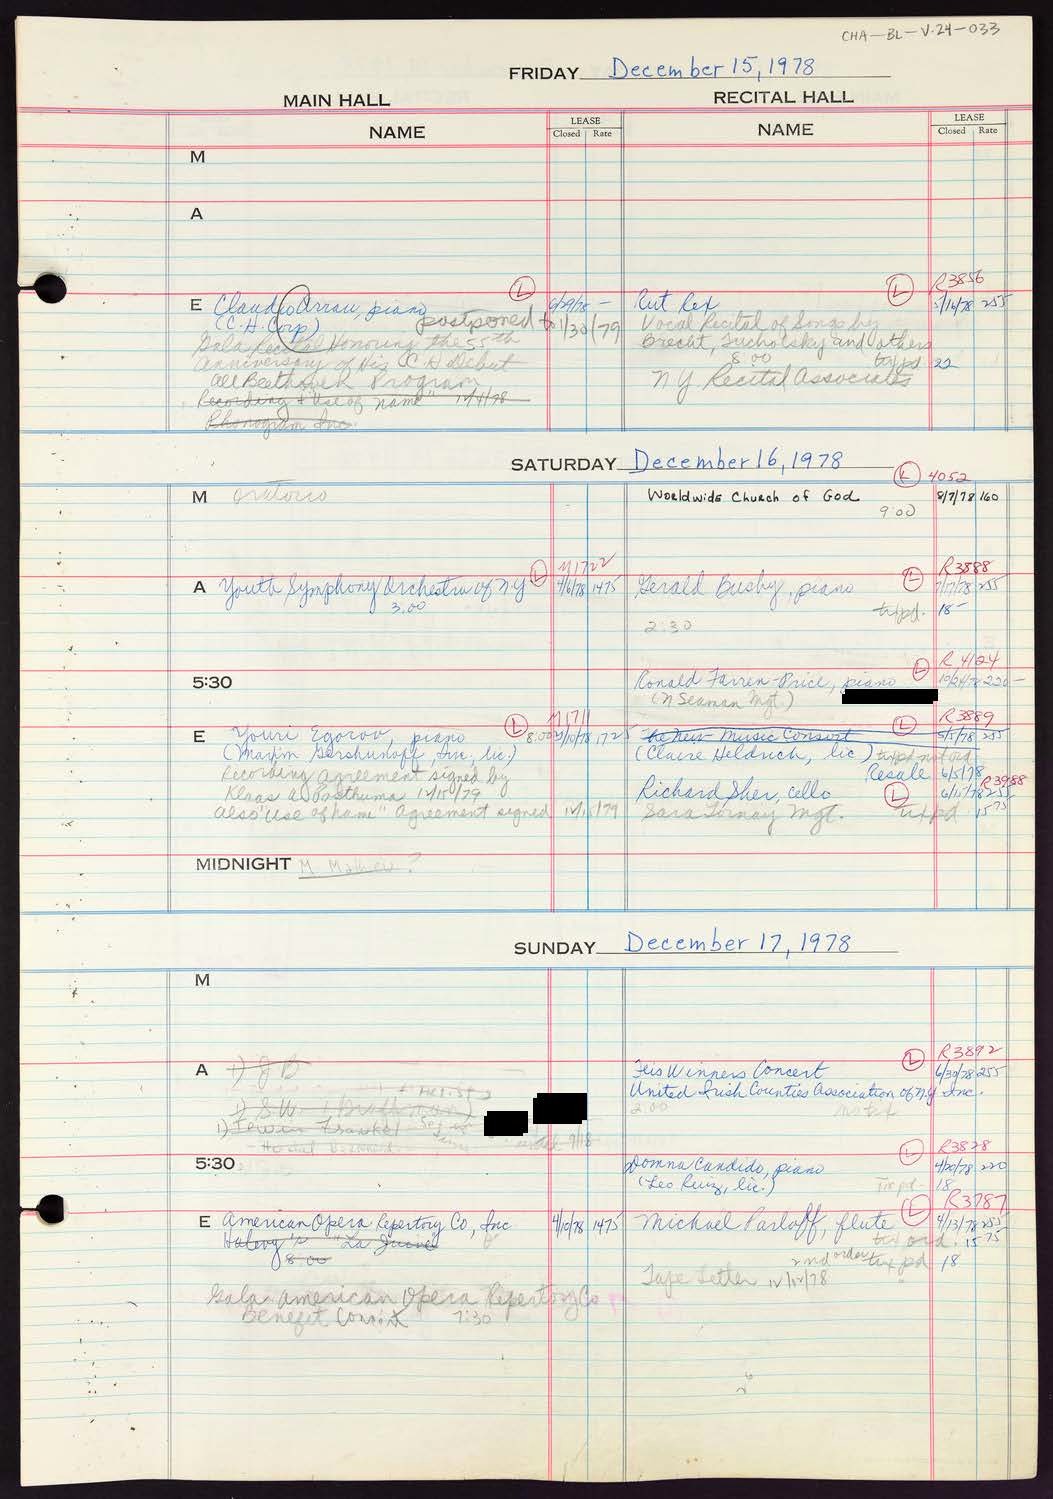 CHA-BL-V.24-033
FRIDAY December 15, 1978
MAIN HALL
RECITAL HALL
NAME
LEASE
Closed Rate
NAME
LEASE
Closed Rate
M
A
E Claudio Arrau, piano
(L)
6/29/78 -
(C.H. Corp)
postponed to 1/30/79
Gala Recital Honoring the 55th
Anniversary of His C H Debut
All Beethoven Program
Recording + "Use of name"
Phonogram Inc.
R3856
Rut Rex
(L)
5/16/78 255
Vocal Recital of Songs by
Brecht, Tucholsky and others
8:00
tx pd 22
NY Recital Associates
SATURDAY December 16, 1978
M Oratorio
(L) 4052
Worldwide Church of God 8/7/78 160
9:00
M1722
A Youth Symphony Orchestra of NY
(L)
4/6/78 1475
3:00
R3888
Gerald Busby, piano
(L)
7/7/78 255
tx pd. 18-
2:30
5:30
R 4124
Ronald Farren-Price, piano
(L)
10/24/78 220-
(N Seaman Mgt.)
M1711
E Youri Egorov, piano
(L)
8:00
1725
(Maxim Gershunoff, Inc, lic.)
Recording agreement signed by
Klaas A. Posthuma 12/15/79
also "use of name" Agreement signed 12/15/79
R3889
The New Music Consort
(L)
5/5/78 255
(Claire Heldrich, lic)
tx pd not ord
Resale 6/5/78
R3988
Richard Sher, cello
(L)
255
Sara Tornay Mgt.
tx pd. 15 75
MIDNIGHT M ?
SUNDAY December 17, 1978
M
A 1) J B
1) S.W.
1) Erwin Frankel
R3892
Feis Winners Concert
(L)
6/30/78 255
United Irish Counties Association of NY Inc.
2:00
no tx
5:30
R3828
Donna Candido, piano
(L)
4/20/78 220
(Leo Ruiz, lic.)
Tx pd - 18
E American Opera Repertory Co, Inc
4/10/78 1475
Halevy's "La Juive"
8:00
Gala American Opera Repertory Co
Benefit Concert 7:30
R3787
Michael Parloff, flute
(L)
4/13/78 255
tx ord. 15 75
2nd order tx pd 18
Tape Letter 12/12/78